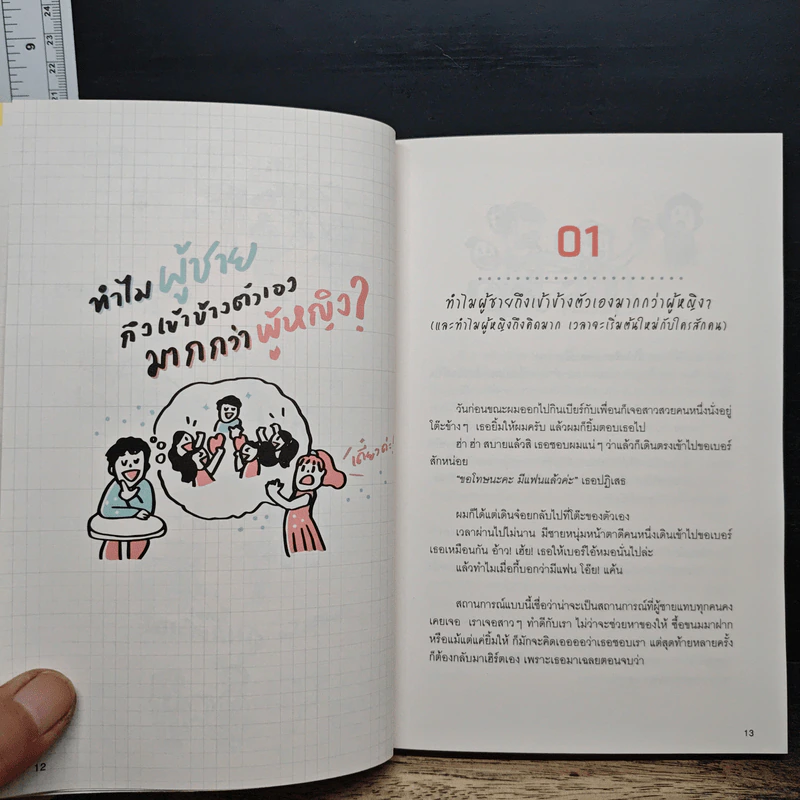 9
ทำไมผู้ชาย
ถึงเข้าข้างตัวเอง
มากกว่าผู้หญิง?
เดี๋ยวค่ะ!
12
01
ทำไมผู้ชายถึงเข้าข้างตัวเองมากกว่าผู้หญิงา
(และทำไมผู้หญิงถึงคิดมาก เวลาจะเริ่มต้นใหม่กับใครสักคน)
วันก่อนขณะผมออกไปกินเบียร์กับเพื่อนก็เจอสาวสวยคนหนึ่งนั่งอยู่
โต๊ะข้างๆ เธอยิ้มให้ผมครับ แล้วผมก็ยิ้มตอบเธอไป
ฮ่า ฮ่า สบายแล้วสิ เธอชอบผมแน่ๆ ว่าแล้วก็เดินตรงเข้าไปขอเบอร์
สักหน่อย
"ขอโทษนะคะ มีแฟนแล้วค่ะ" เธอปฏิเสธ
ผมก็ได้แต่เดินจ๋อยกลับไปที่โต๊ะของตัวเอง
เวลาผ่านไปไม่นาน มีชายหนุ่มหน้าตาดีคนหนึ่งเดินเข้าไปขอเบอร์
เธอเหมือนกัน อ้าว! เฮ้ย! เธอให้เบอร์ไอ้หมอนั่นไปล่ะ
แล้วทำไมเมื่อกี้บอกว่ามีแฟน โอ๊ย! แค้น
สถานการณ์แบบนี้เชื่อว่าน่าจะเป็นสถานการณ์ที่ผู้ชายแทบทุกคนคง
เคยเจอ เราเจอสาวๆ ทำดีกับเรา ไม่ว่าจะช่วยหาของให้ ซื้อขนมมาฝาก
หรือแม้แต่แค่ยิ้มให้ ก็มักจะคิดเออออว่าเธอชอบเรา แต่สุดท้ายหลายครั้ง
ก็ต้องกลับมาเฮิร์ตเอง เพราะเธอมาเฉลยตอนจบว่า
13